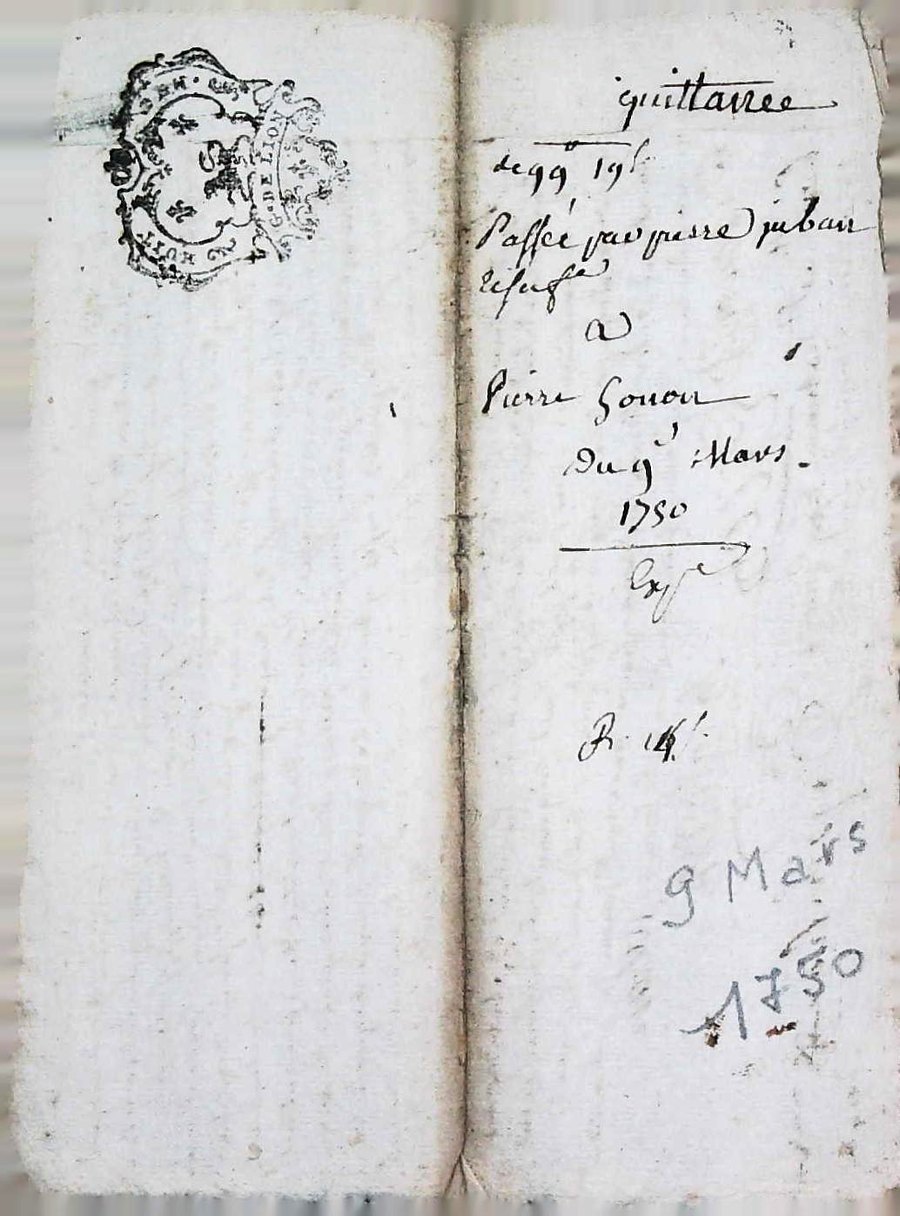 G. DE LION
HUIT
quittance
de 99# 19s
Passée par pierre juban
a
Pierre Gonon
Du 9e Mars
1750
Expe
9 Mars
1750